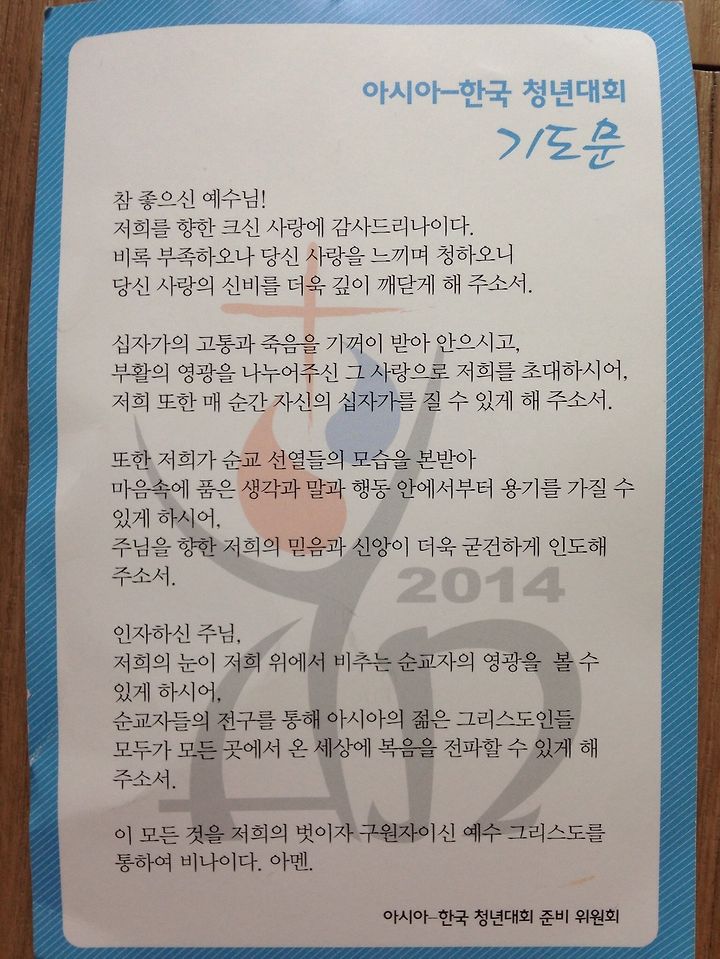 아시아-한국 청년대회
기도문
참 좋으신 예수님!
저희를 향한 크신 사랑에 감사드리나이다.
비록 부족하오나 당신 사랑을 느끼며 청하오니
당신 사랑의 신비를 더욱 깊이 깨닫게 해 주소서.
십자가의 고통과 죽음을 기꺼이 받아 안으시고,
부활의 영광을 나누어주신 그 사랑으로 저희를 초대하시어,
저희 또한 매 순간 자신의 십자가를 질 수 있게 해 주소서.
또한 저희가 순교 선열들의 모습을 본받아
마음속에 품은 생각과 말과 행동 안에서부터 용기를 가질 수
있게 하시어,
주님을 향한 저희의 믿음과 신앙이 더욱 굳건하게 인도해
주소서.
2014
인자하신 주님,
저희의 눈이 저희 위에서 비추는 순교자의 영광을 볼 수
있게 하시어,
순교자들의 전구를 통해 아시아의 젊은 그리스도인들
모두가 모든 곳에서 온 세상에 복음을 전파할 수 있게 해
주소서.
이 모든 것을 저희의 벗이자 구원자이신 예수 그리스도를
통하여 비나이다. 아멘.
아시아-한국 청년대회 준비 위원회